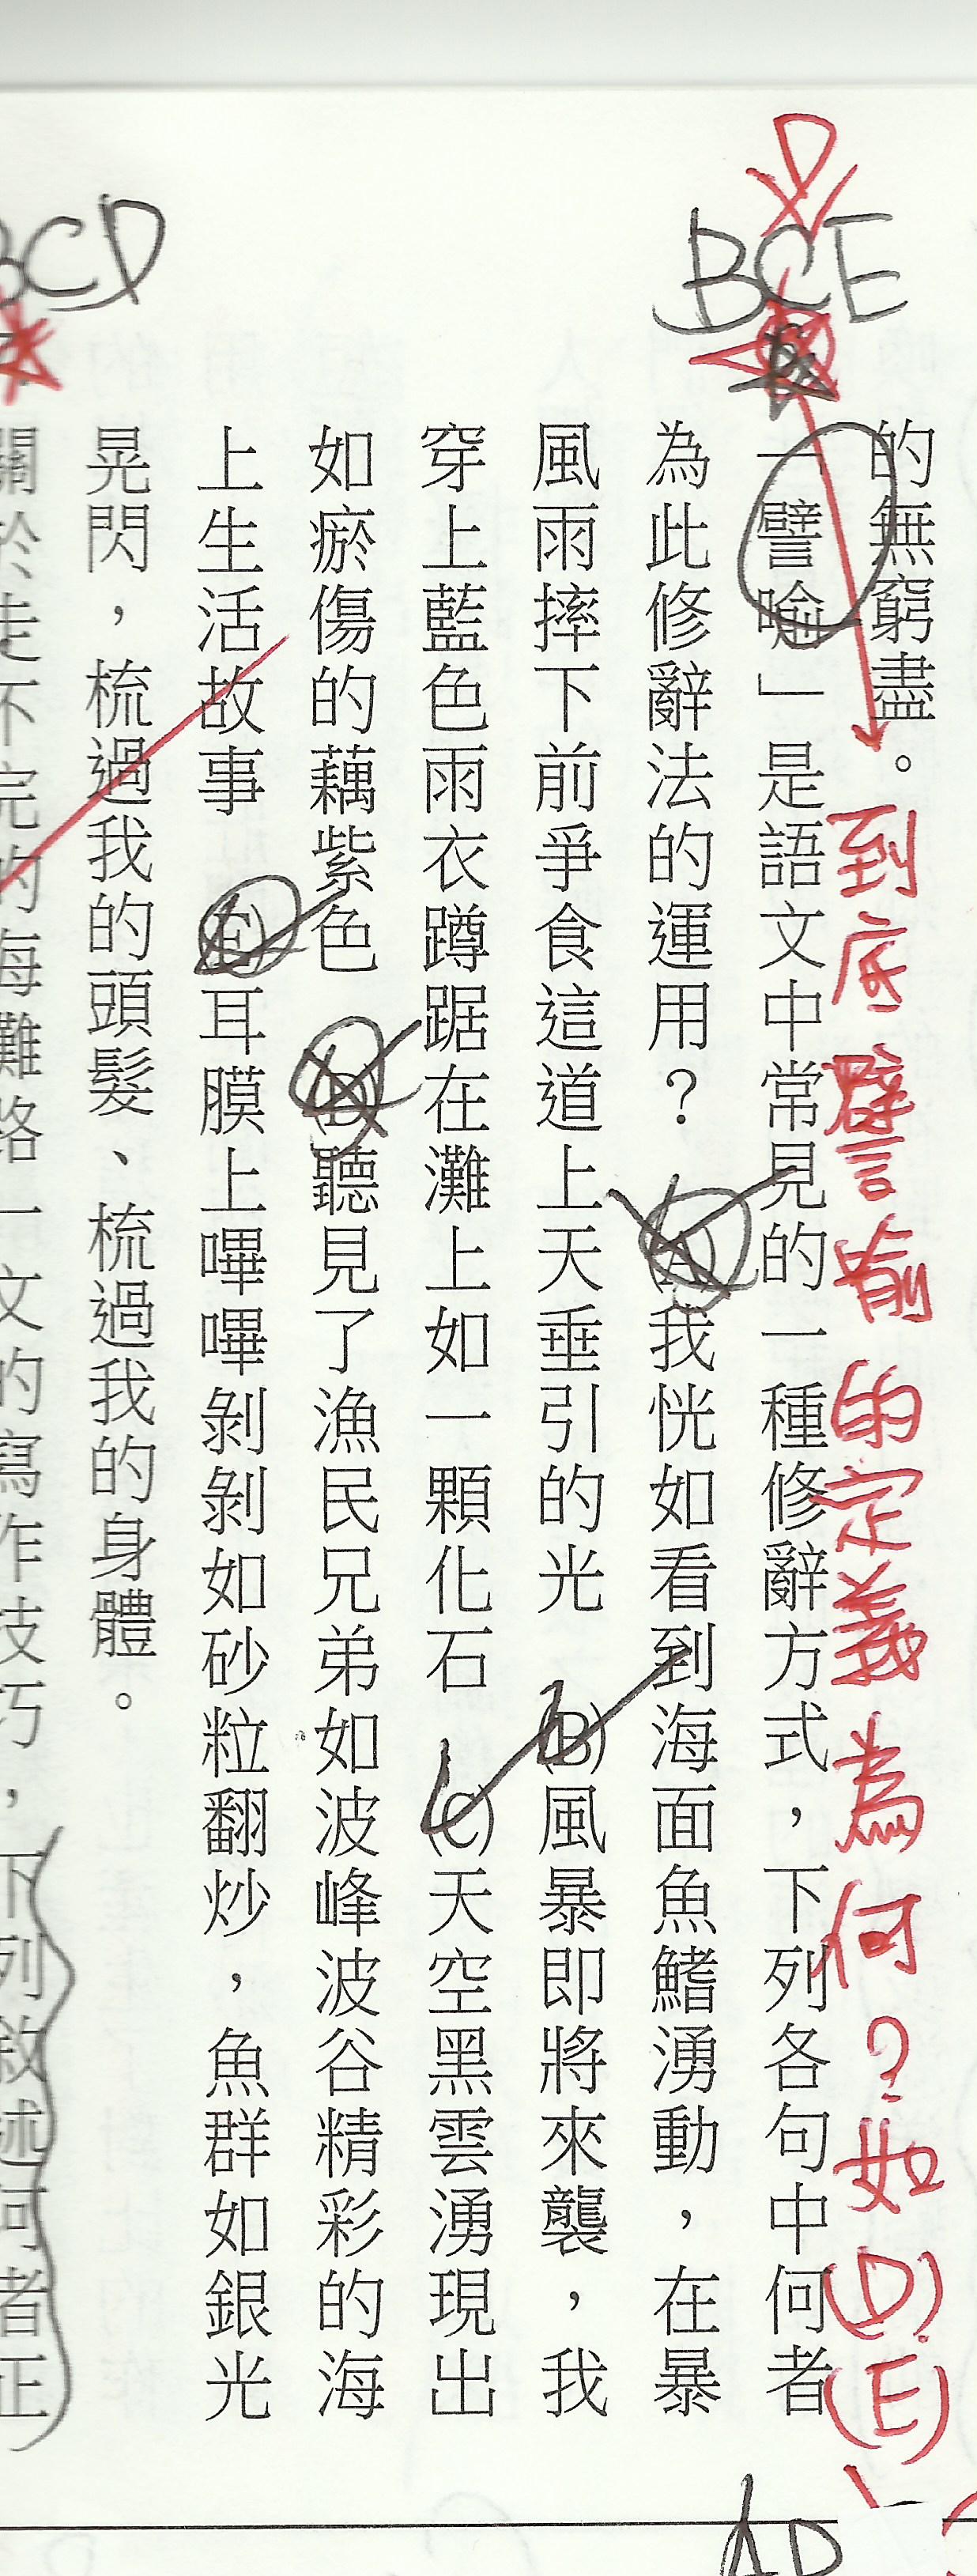 的無窮盡。
到底譬喻的定義為何？如(D)(E)
D
BCE
「譬喻」是語文中常見的一種修辭方式，下列各句中何者
為此修辭法的運用？(A)我恍如看到海面魚鰭湧動，在暴
風雨摔下前爭食這道上天垂引的光 (B)風暴即將來襲，我
穿上藍色雨衣蹲踞在灘上如一顆化石 (C)天空黑雲湧現出
如瘀傷的藕紫色 (D)聽見了漁民兄弟如波峰波谷精彩的海
上生活故事 (E)耳膜上嗶嗶剝剝如砂粒翻炒，魚群如銀光
晃閃，梳過我的頭髮、梳過我的身體。
BCD
關於走不完的海灘路一文的寫作技巧，下列敘述何者正